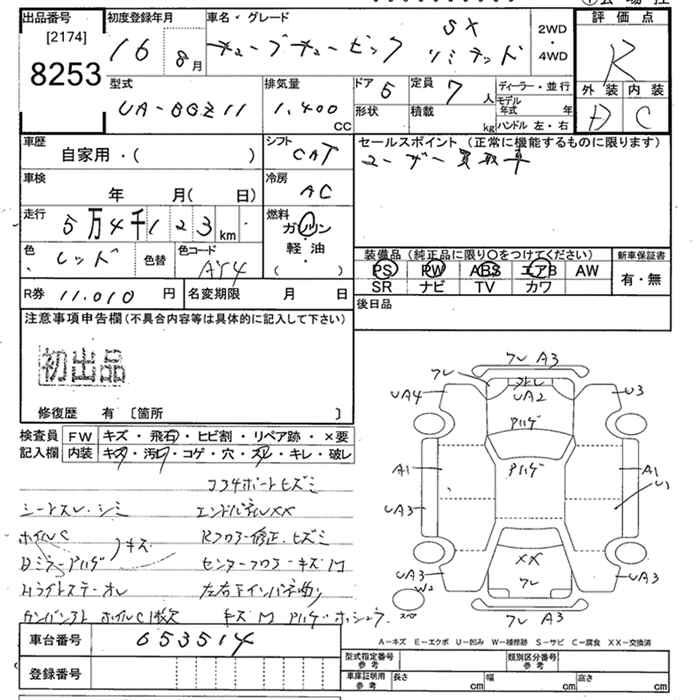 出品番号 初度登録年月 車名・グレード 評価点
[2174]
8253 16 8月 キューブキュービック SX リミテッド 2WD・4WD R
型式 排気量 ドア 定員 ディーラー・並行 外装 内装
UA-BGZ11 1,400 cc 5 7人 モデル年式 年 D C
形状 積載 kg ハンドル 左・右
車歴 シフト セールスポイント (正常に機能するものに限ります)
自家用・( ) CAT ユーザー買取車
車検 冷房
年 月( 日) AC
走行 燃料
5万4千123km ガソリン
軽・油
( )
色 レッド 色替 色コード AY4
装備品(純正品に限り○をつけてください) 新車保証書
PS PW ABS エアB AW 有・無
SR ナビ TV カワ
R券 11,010 円 名変期限 月 日
後日品
注意事項申告欄(不具合内容等は具体的に記入して下さい)
初出品
修復歴 有 〔箇所 〕
検査員 FW キズ・飛石・ヒビ割・リペア跡・×要
記入欄 内装 キズ・汚れ・コゲ・穴・スレ・キレ・破レ
コアサポートヒズミ
シートスレ・シミ エンドパネルXX
ホイルC キズ Rフロアー修正、ヒズミ
Dミラーアハゲ センターフロアーキズM
Hライトステーオレ 左右下インパネ曲り
ホイルC1枚欠 キズM
フレ A3
フレ コトレ
UA4 UA2 U3
アハゲ
アハゲ
A1 A1
UA3 U1
XX
UA3 フレ UA3
W2
フレ A3
A-キズ E-エクボ U-凹み W-補修跡 S-サビ C-腐食 XX-交換済
車台番号 653514
登録番号
型式指定番号 参考 類別区分番号 参考
車庫証明用 参考 長さ cm 幅 cm 高さ cm